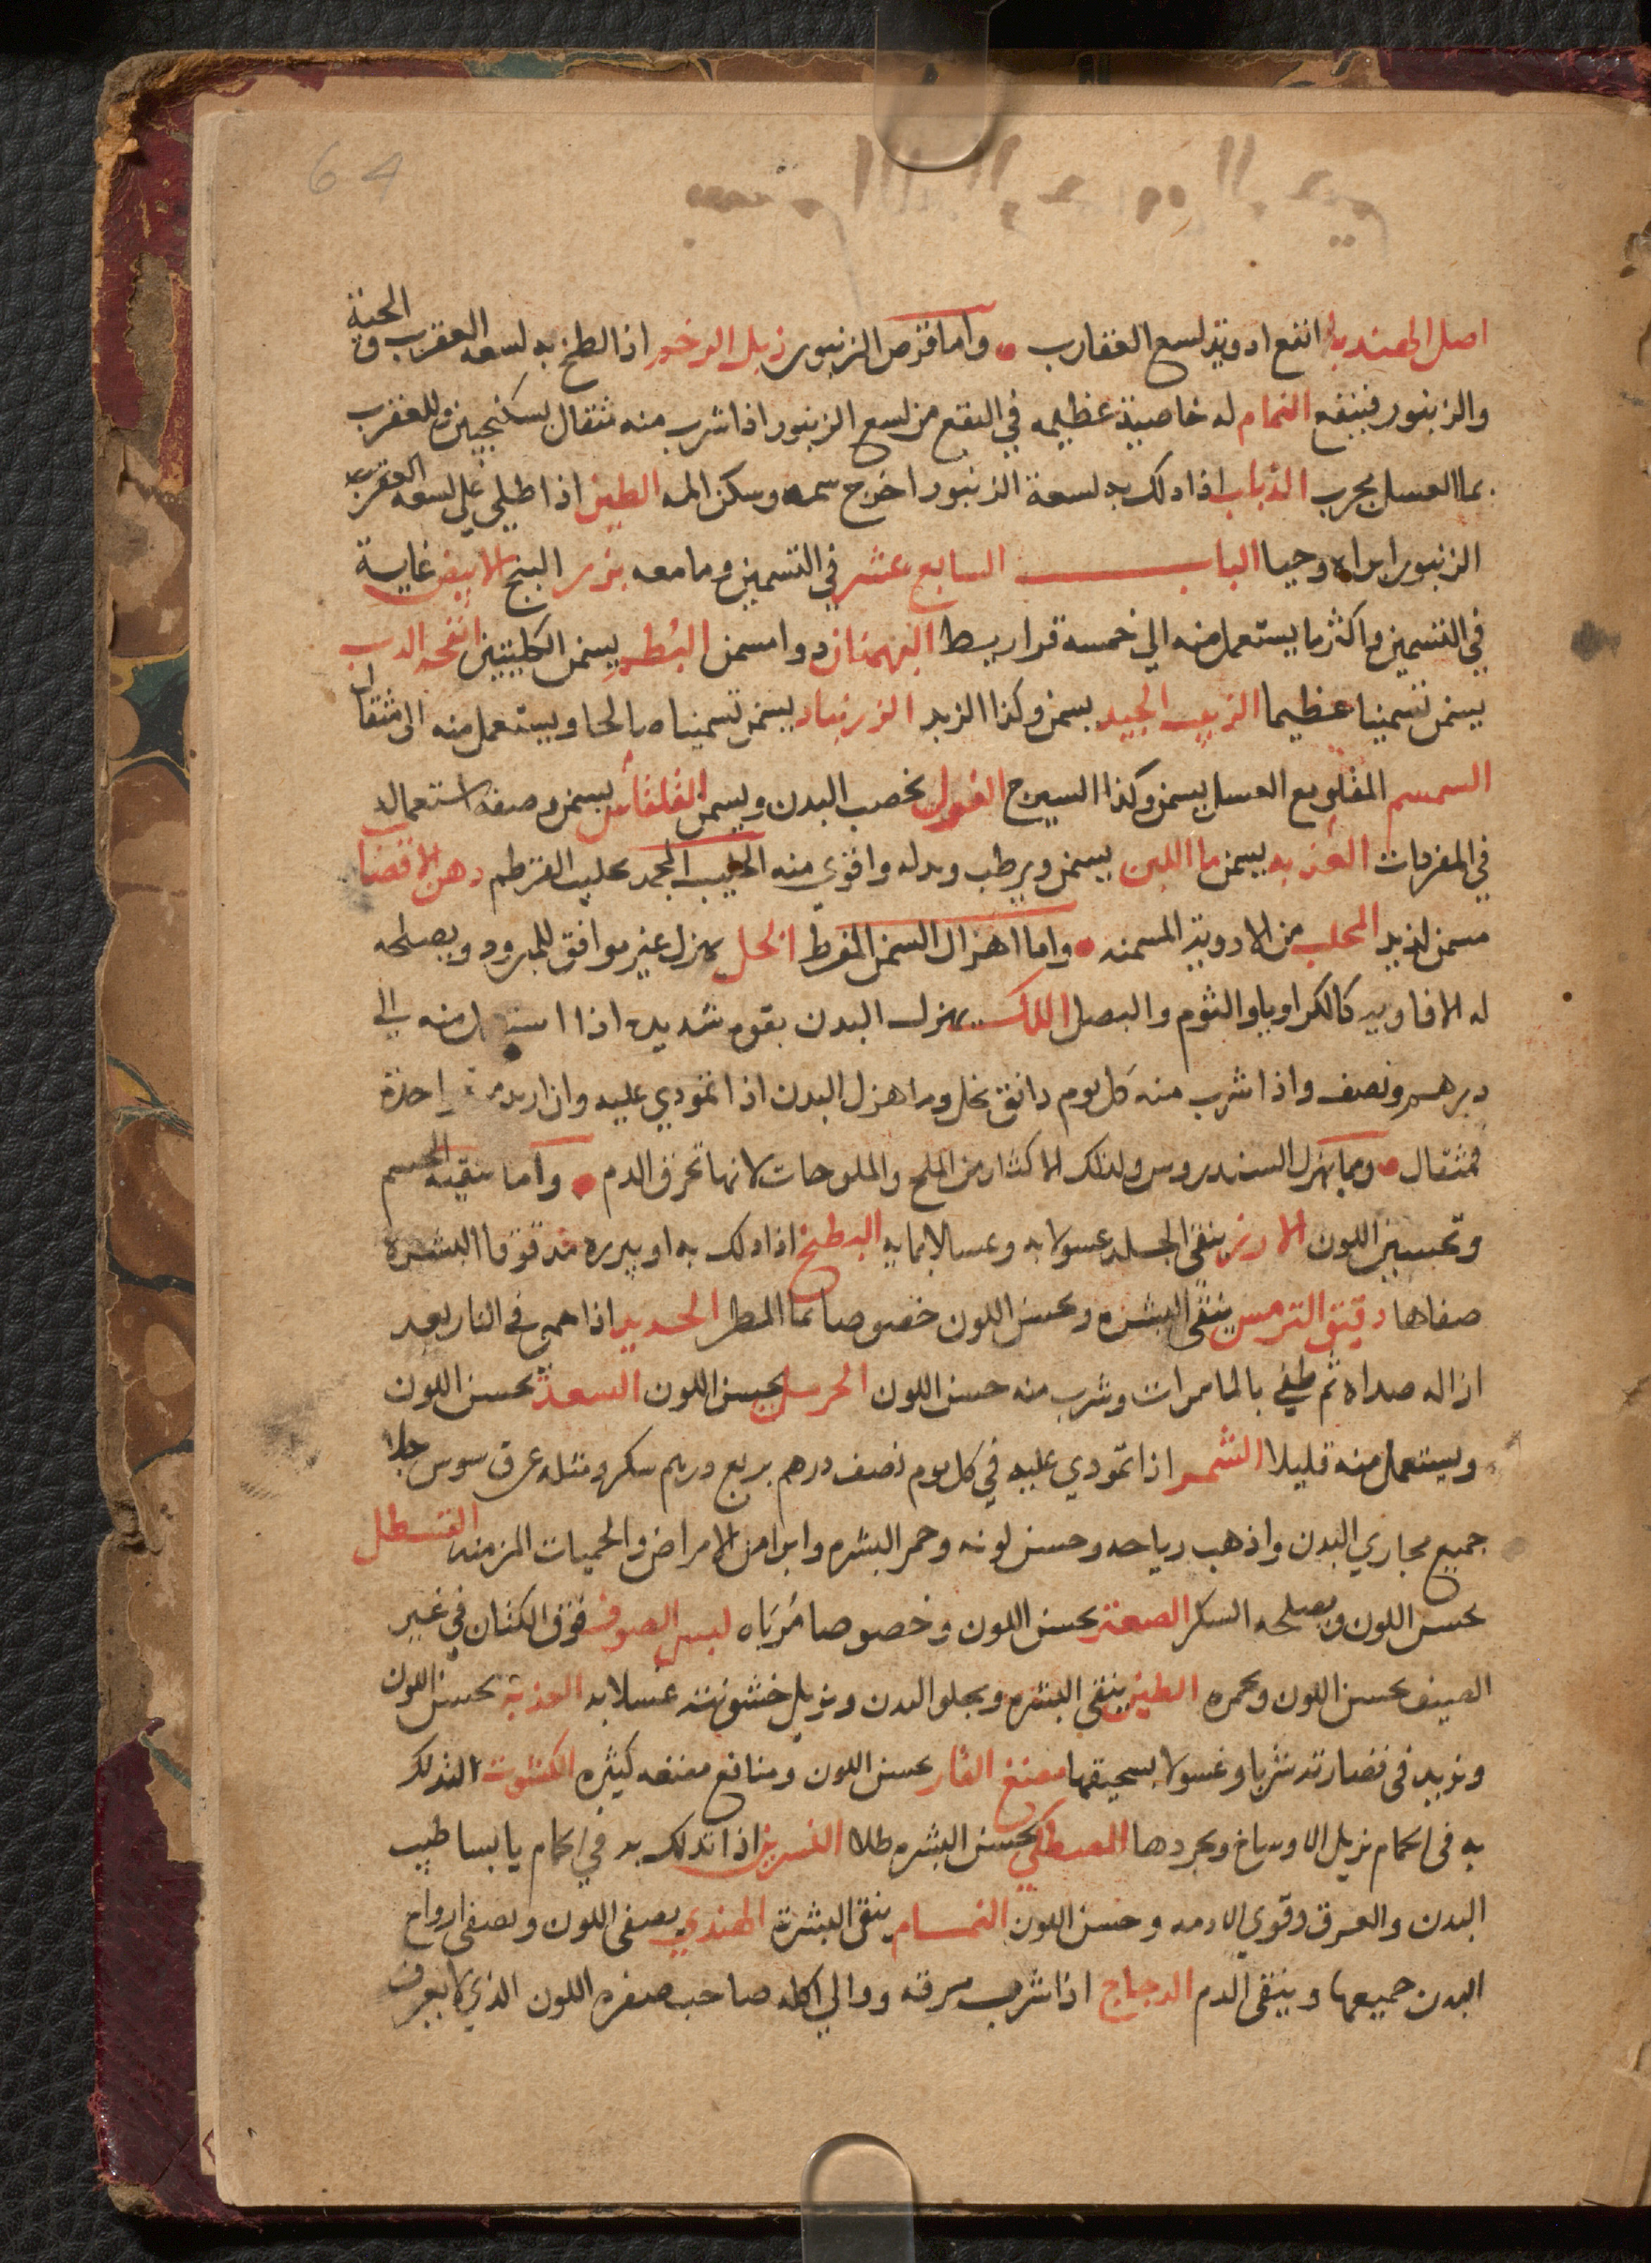 64
اصل الهندبا انفع ادوية لسع العقارب واما قرص الزنبور زبل اذا لطخ به لسعه العقرب و الحية
والزنبور فينفع النمام له خاصية عظيمه في النفع من لسع الزنبور اذا شرب منه مثقال بسكنجبين وللعقرب
بما العسل مجرب الذباب اذا دلك به لسعة الزنبور اخرج سمه وسكن المه الطين اذا طلي على لسعه العقرب
الزنبور ابراه وحيا الباب السابع عشر في التسمين وما معه بزر البنج الابيض غاية
في التسمين واكثر ما يستعمل منه الي خمسه قراريط البهمنان دوا مسمن البطم يسمن الكليتين انفحه الدب
يسمن تسمينا عظيما الزبيب الجيد يسمن وكذا الزبد الزرنباد يسمن تسمينا صالحا ويستعمل منه الى مثقال
السمسم المقلو مع العسل يسمن وكذا السيرج الفول يخصب البدن ويسمن القلقاس يسمن وصفه استعماله
في المفردات العذبه يسمن ما اللبن يسمن ويرطب وبدله واقوي منه الحليب المجمد بحليب القرطم دهن
مسمن لذيذ المحلب من الادوية المسمنه واما اهزال السمن المفرط الخل يهزل غير موافق للمبرود ويصلحه
له الافاويه كالكراويا والثوم والبصل اللك يهزل البدن بقوه شديده اذا منه الى
درهم ونصف واذا شرب منه كل يوم دانق بخل وما اهزل البدن اذا تمودي عليه وان اريد واحدة
فمثقال ومما يهزل السندروس ولذلك الاكثار من الملح والملوحات لانها تحرق الدم واما تنقيه الجسم
وتحسين اللون الارز ينقى الجلد غسولا به وغسالا بمايه البطيخ اذا دلك به او ببزره مدقوقا البشره
صفاها دقيق الترمس ينقى البشره ويحسن اللون خصوصا بما المطر الحديد اذا حمي في النار بعد
ازاله صداه ثم طفي بالما مرات وشرب منه حسن اللون يحسن اللون السعد يحسن اللون
ويستعمل منه قليلا الشمر اذا تمودي عليه في كل يوم نصف درهم بربع درهم سكر ومثله عرق سوس جلا
جميع مجاري البدن واذهب رياحه وحسن لونه وحمر البشره وابرا من الامراض والحميات المزمنه القسطل
يحسن اللون ويصلحه السكر الصعتر يحسن اللون وخصوصا مُربَاه لبس الصوف فوق الكتان في غير
الصيف يحسن اللون ويحمره الطين ينقى البشره ويجلو البدن ويزيل خشونته غسلا به العذبة يحسن اللون
ويزيد في نضارته شربا وغسولا بسحيقها مضغ يحسن اللون ومنافع مضغه كثيره الكشوت التدلك
به في الحمام يزيل الاوساخ ويجردها المصطكي يحسن البشره طلا النسرين اذا تدلك به في الحمام يابسا طيب
البدن والعرق وقوي الادمه وحسن اللون النمام ينقى البشرة الهندي يصفى اللون ويصفى ارواح
البدن جميعها وينقى الدم الدجاج اذا شرب مرقه ووالي اكله صاحب صفره اللون الذي لا يعرف